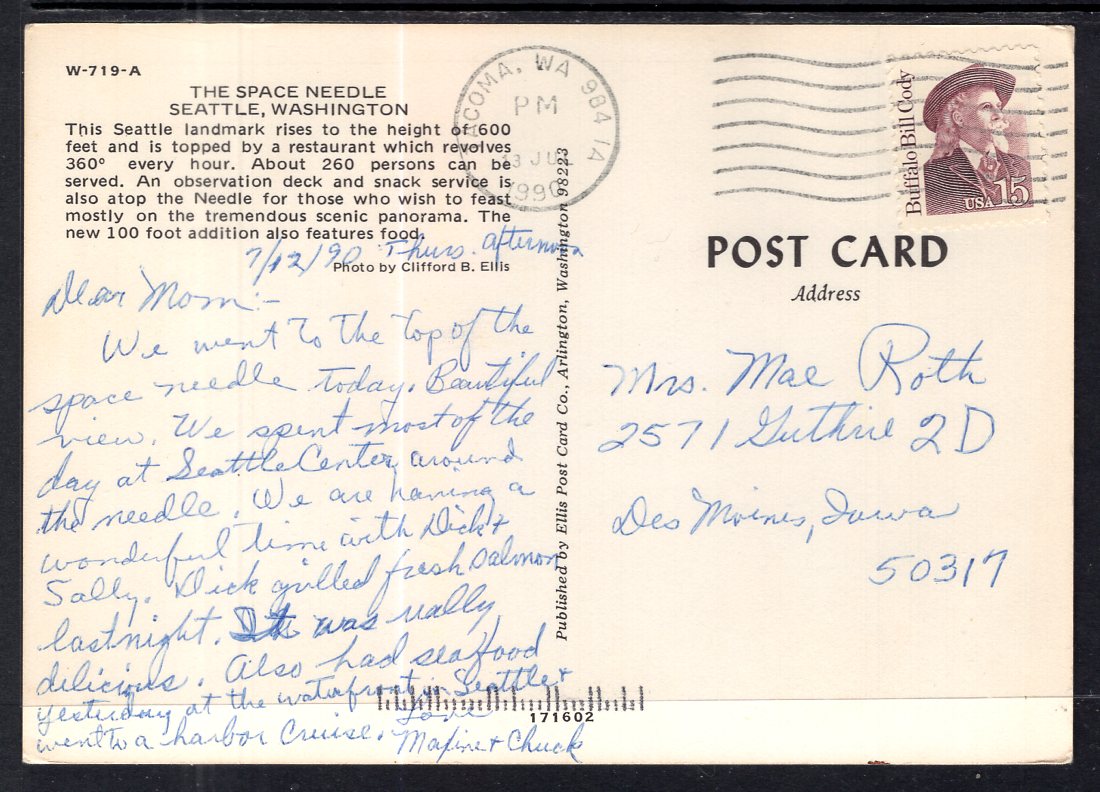 W-719-A
THE SPACE NEEDLE
SEATTLE, WASHINGTON
This Seattle landmark rises to the height of 600
feet and is topped by a restaurant which revolves
360° every hour. About 260 persons can be
served. An observation deck and snack service is
also atop the Needle for those who wish to feast
mostly on the tremendous scenic panorama. The
new 100 foot addition also features food.
Photo by Clifford B. Ellis
7/12/90 Thurs. afternoon
Dear Mom:-
We went to the top of the
space needle today. Beautiful
view. We spent most of the
day at Seattle Center, around
the needle. We are having a
wonderful time with Dick +
Sally. Dick grilled fresh salmon
last night. It was really
delicious. Also had seafood
yesterday at the waterfront in Seattle +
went to a harbor cruise.
Love
Maxine + Chuck
171602
Published by Ellis Post Card Co., Arlington, Washington 98223
TACOMA, WA 984 1A
PM
13 JU
1990
Buffalo Bill Cody
USA 15
POST CARD
Address
Mrs. Mae Roth
2571 Guthrie 2D
Des Moines, Iowa
50317